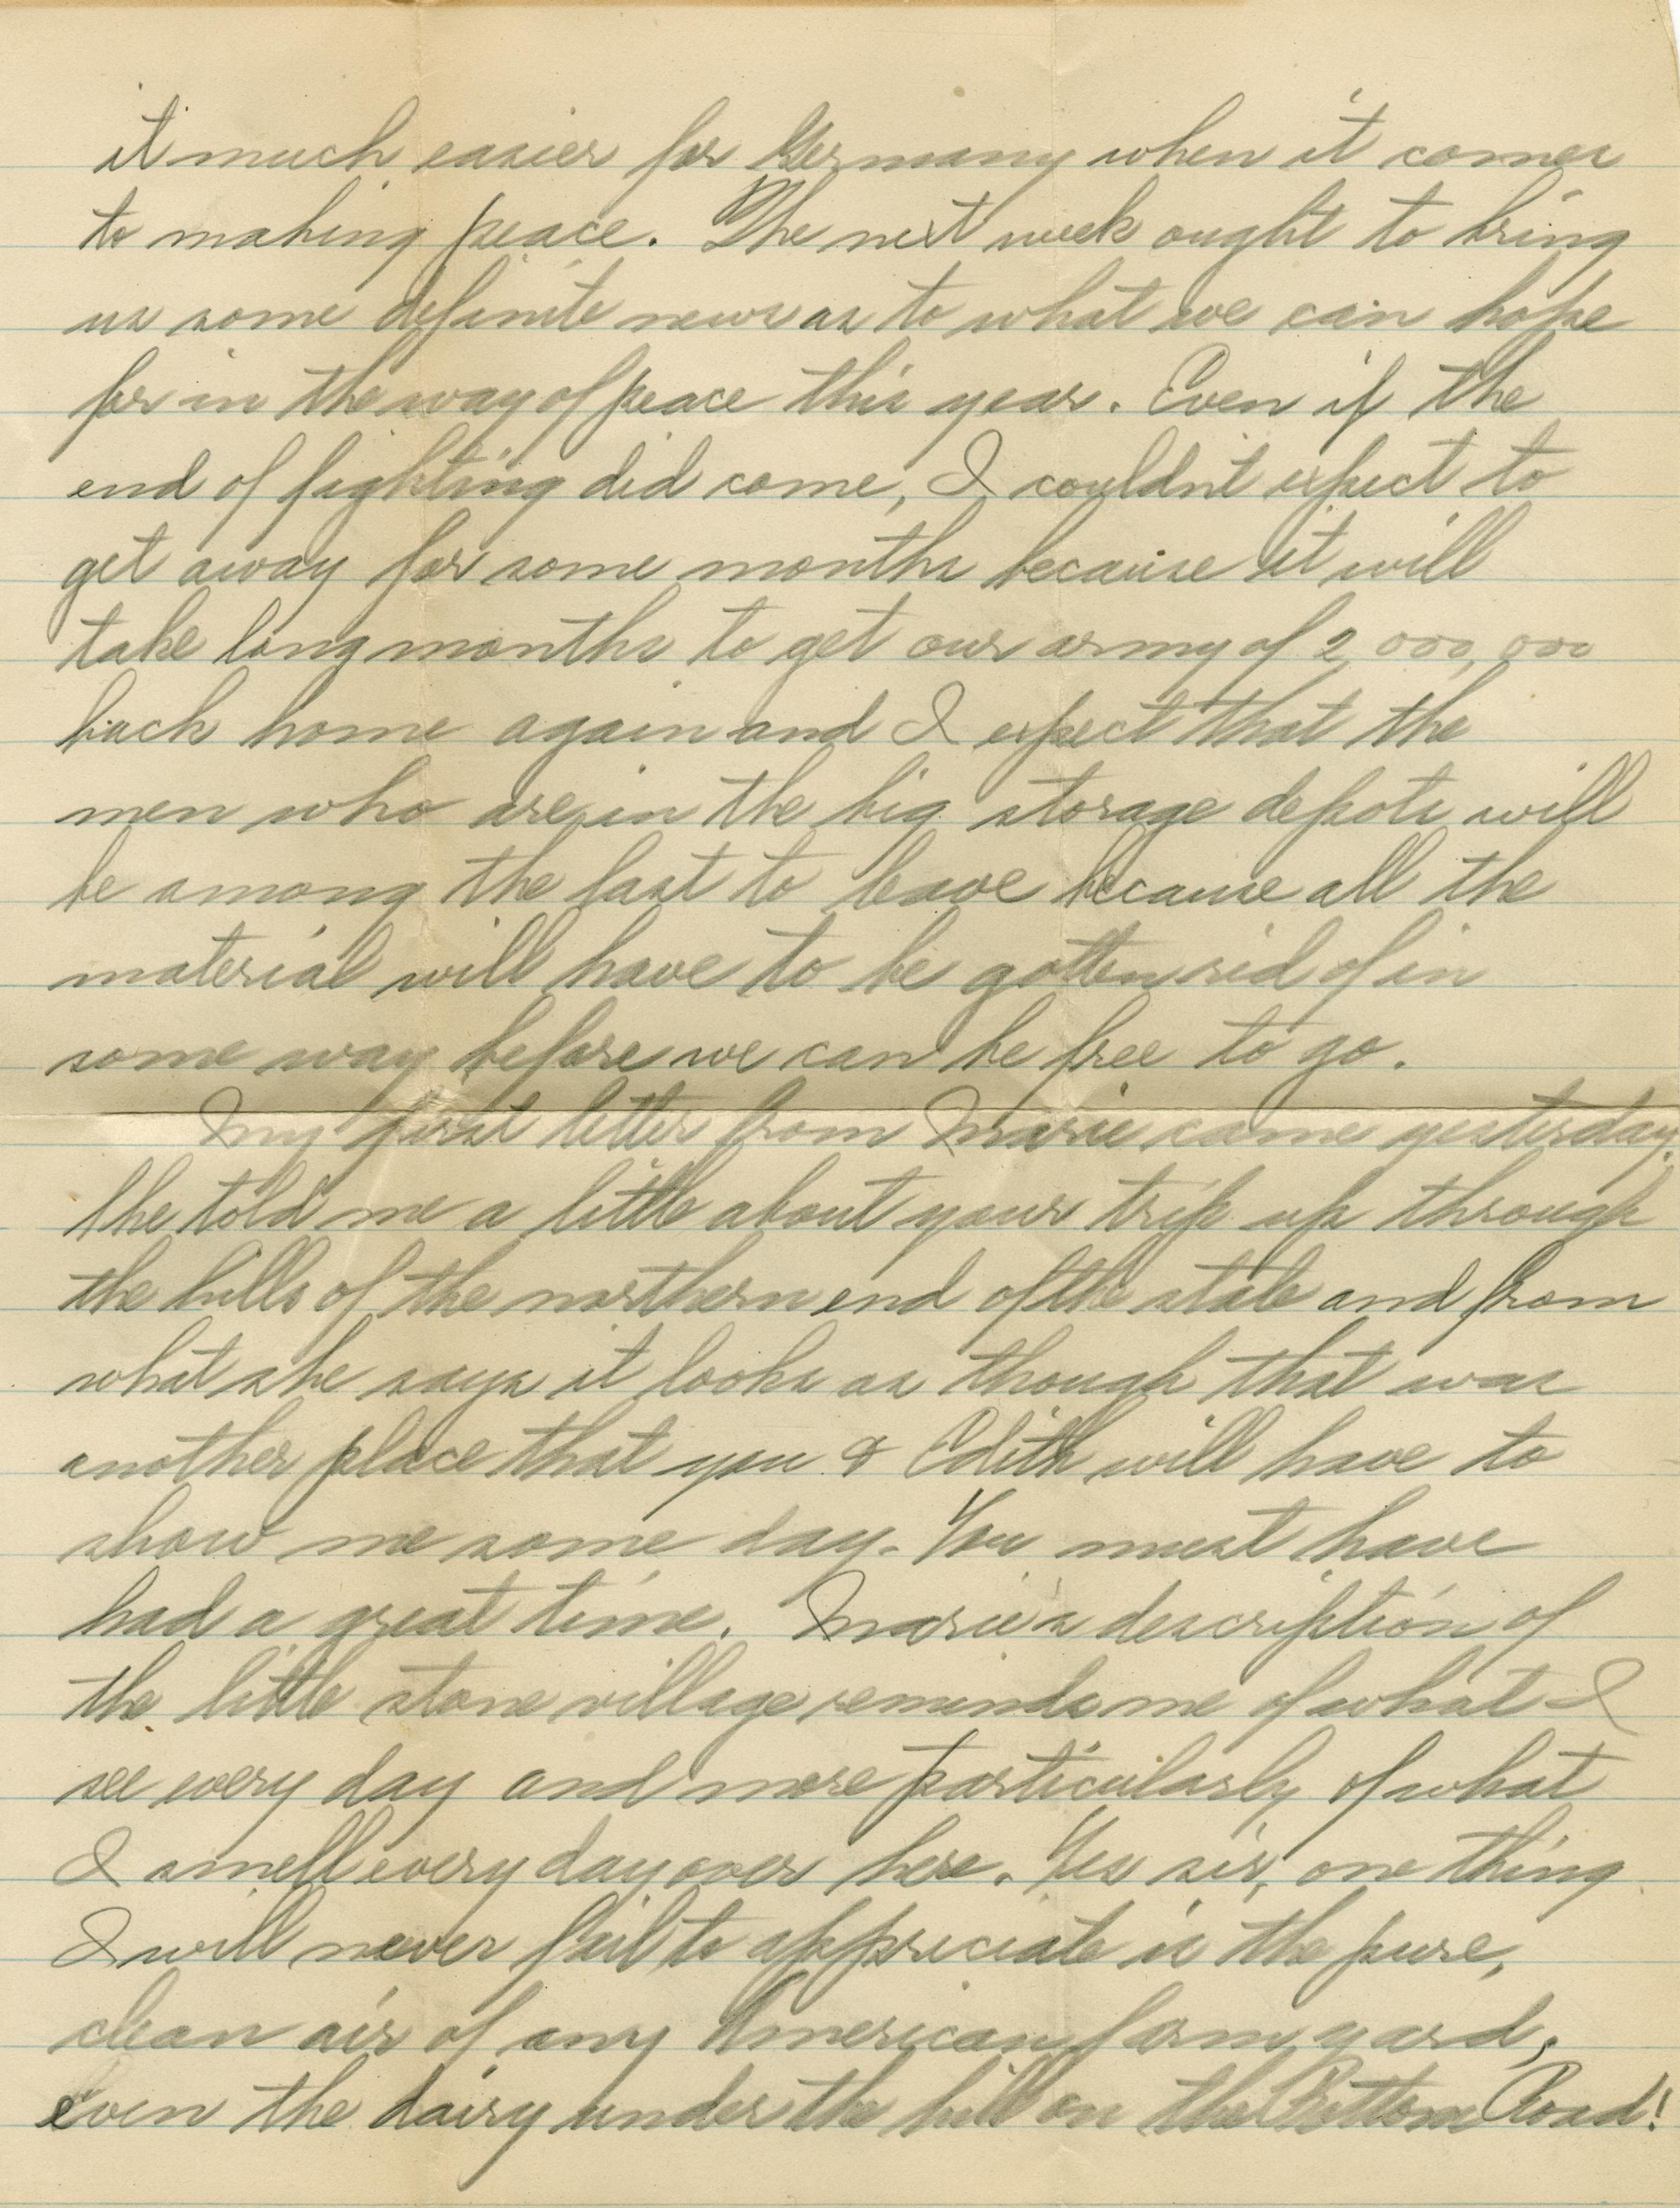 it much easier for Germany when it comes
to making peace. The next week ought to bring
us some definite news as to what we can hope
for in the way of peace this year. Even if the
end of fighting did come, I couldn't expect to
get away for some months because it will
take long months to get our army of 2,000,000
back home again and I expect that the
men who are in the big storage depots will
be among the last to leave because all the
material will have to be gotten rid of in
some way before we can be free to go.
My first letter from Marie came yesterday.
She told me a little about your trip up through
the hills of the northern end of the state and from
what she says it looks as though that was
another place that you & Edith will have to
show me some day. You must have
had a great time. Marie's description of
the little stone village reminds me of what I
see every day and more particularly of what
I smell every day over here. Yes sir, one thing
I will never fail to appreciate is the pure,
clean air of any American farm yard,
even the dairy under the hill on the Bottom Road!